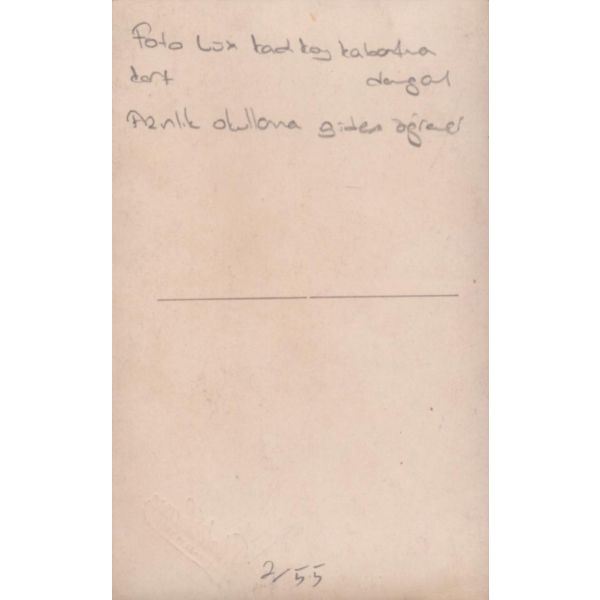 Foto Lüx Kadıköy kabartma
kart damgalı
Azınlık okullarına giden öğrenci
2/55